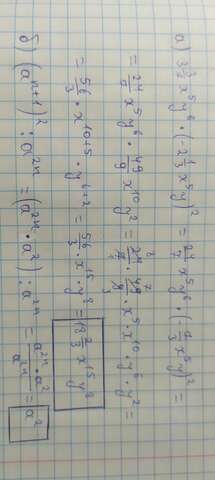 а) 3 3/7 x⁵y⁶ · (-2 1/3 x⁵y)² = 24/7 x⁵y⁶ · (-7/3 x⁵y)² =
= 24/7 x⁵y⁶ · 49/9 x¹⁰y² = 24/7 · 49/9 · x⁵ · x¹⁰ · y⁶ · y² =
= 56/3 · x¹⁰⁺⁵ · y⁶⁺² = 56/3 · x¹⁵ · y⁸ = 18 2/3 x¹⁵y⁸
б) (aⁿ⁺¹)² : a²ⁿ = (a²ⁿ · a²) : a²ⁿ = a²ⁿ · a² / a²ⁿ = a²